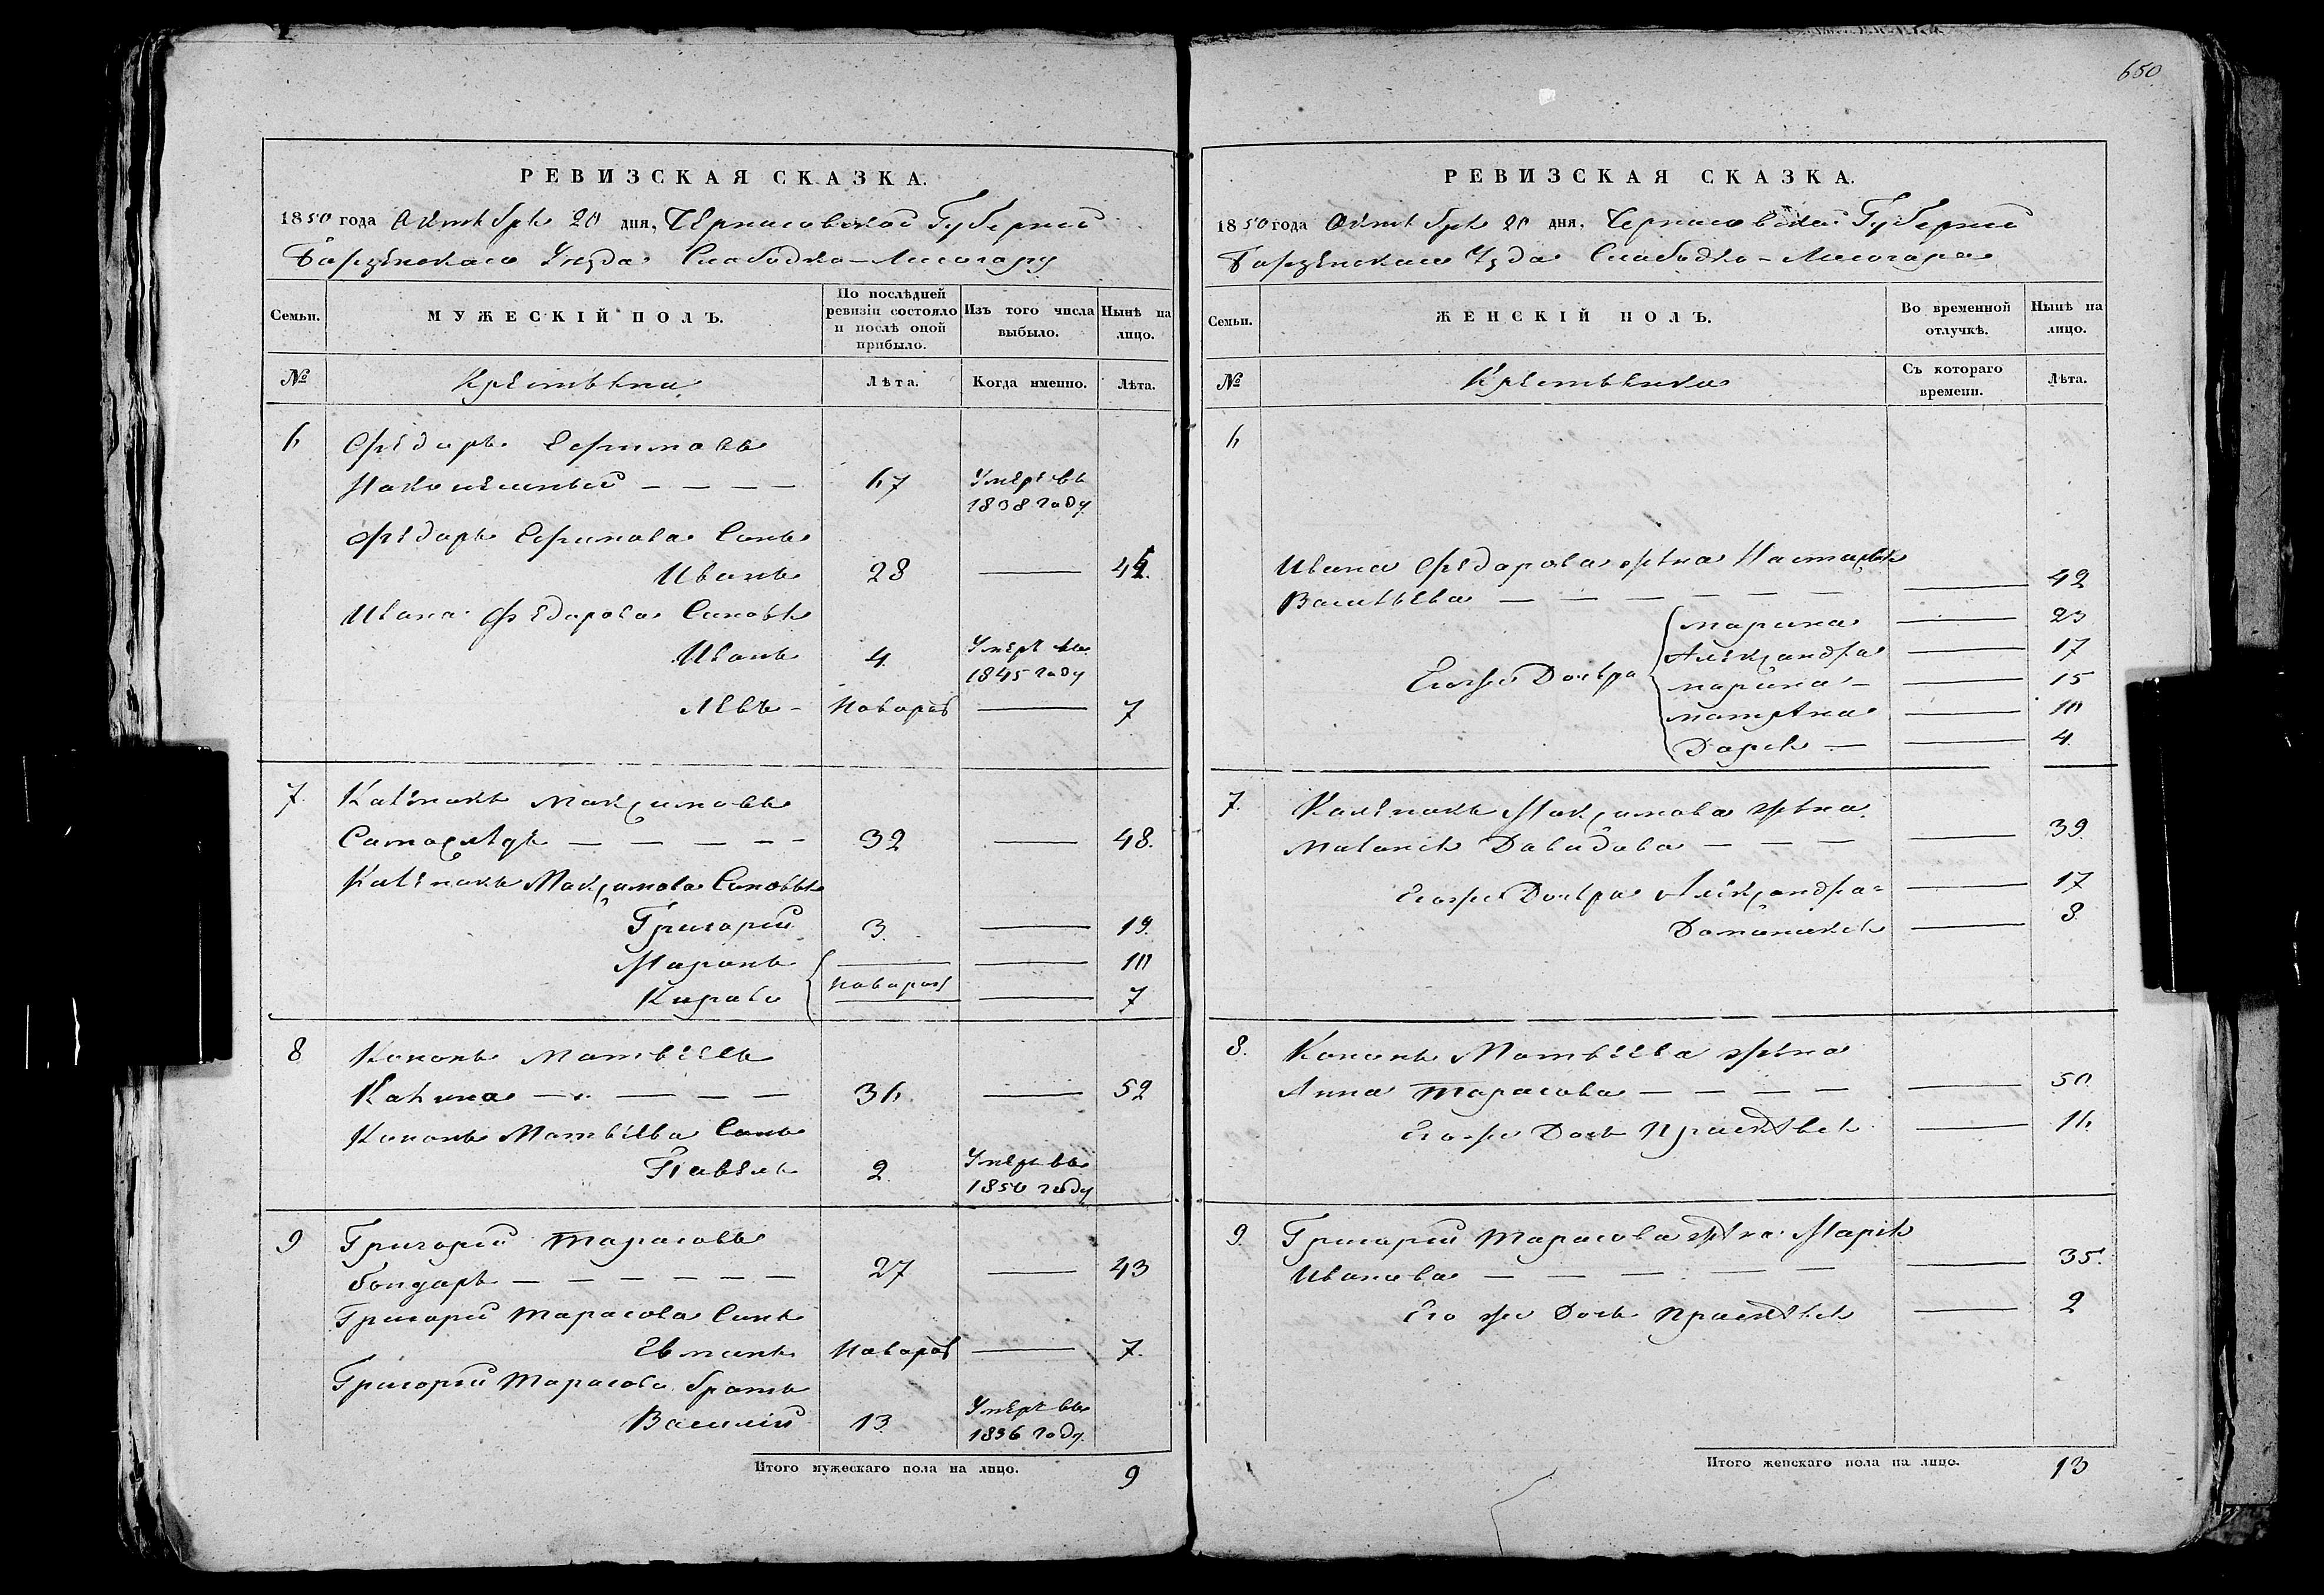 РЕВИЗСКАЯ СКАЗКА.
1850 года Октября 20 дня, Черниговской Губернии
Борзенскаго Уезда Слободка-Лисогору
Семьи.
МУЖЕСКІЙ ПОЛЪ.
По послѣдней ревизіи состояло и послѣ оной прибыло.
Изъ того числа выбыло.
Нынѣ на лицо.
№
Крестьяни
Лѣта.
Когда именно.
Лѣта.
6 Федоръ Ефимовъ
67 Умеръ въ 1838 году
Федоръ Ефимова Сынъ
Иванъ 28 — 45.
Ивана Федорова Сыновья
Иванъ 4 Умеръ въ 1845 году
Левъ - Новорож — 7
7. Каленикъ Максимовъ
— — — — — 32 — 48.
Каленикъ Максимова Сыновья
Григорий 3. — 19.
Миронъ — — 10
Новорож
Кирало — 7
8 Кононъ Матвѣевъ
Калина — — — — 36. — 52
Кононъ Матвѣева Сынъ
Павелъ 2. Умеръ въ 1850 году
9 Григорий Тарасовъ
Бондаръ — — — — — — 27 — 43
Григорий Тарасова Синъ
Новорож — 7.
Григорий Тарасова братъ
Василий 13 Умеръ въ 1836 году.
Итого мужескаго пола на лицо. 9
650
РЕВИЗСКАЯ СКАЗКА.
1850 года Октября 20 дня, Черниговской Губернии
Борзенскаго Узда Слободка-Лисогора
Семьи.
ЖЕНСКІЙ ПОЛЪ.
Во временной отлучкѣ.
Нынѣ на лицо.
№
Крестьянки
Съ котораго времени.
Лѣта.
6
Ивана Федорова жена Настасья
Васильева — — — — — — — 42
Егоже Дочьра
Марина — 23
Александра — 17
Марина - — 15
Матрена — 10
Дарья — — 4.
7. Каленикъ Максимова жена
Маланья Давидова — — — — 39.
Егоже Дочьра Александра - — 17
Доминикія — 8
8. Кононъ Матвѣева жена
Анна Тарасова — — — — — 50.
Егоже Дочь Прасковья — 16.
9. Григорий Тарасова жена Марья
Иванова — — — — — — 35.
Его же Дочь Прасковья — 2
Итого женскаго пола на лицо. 13